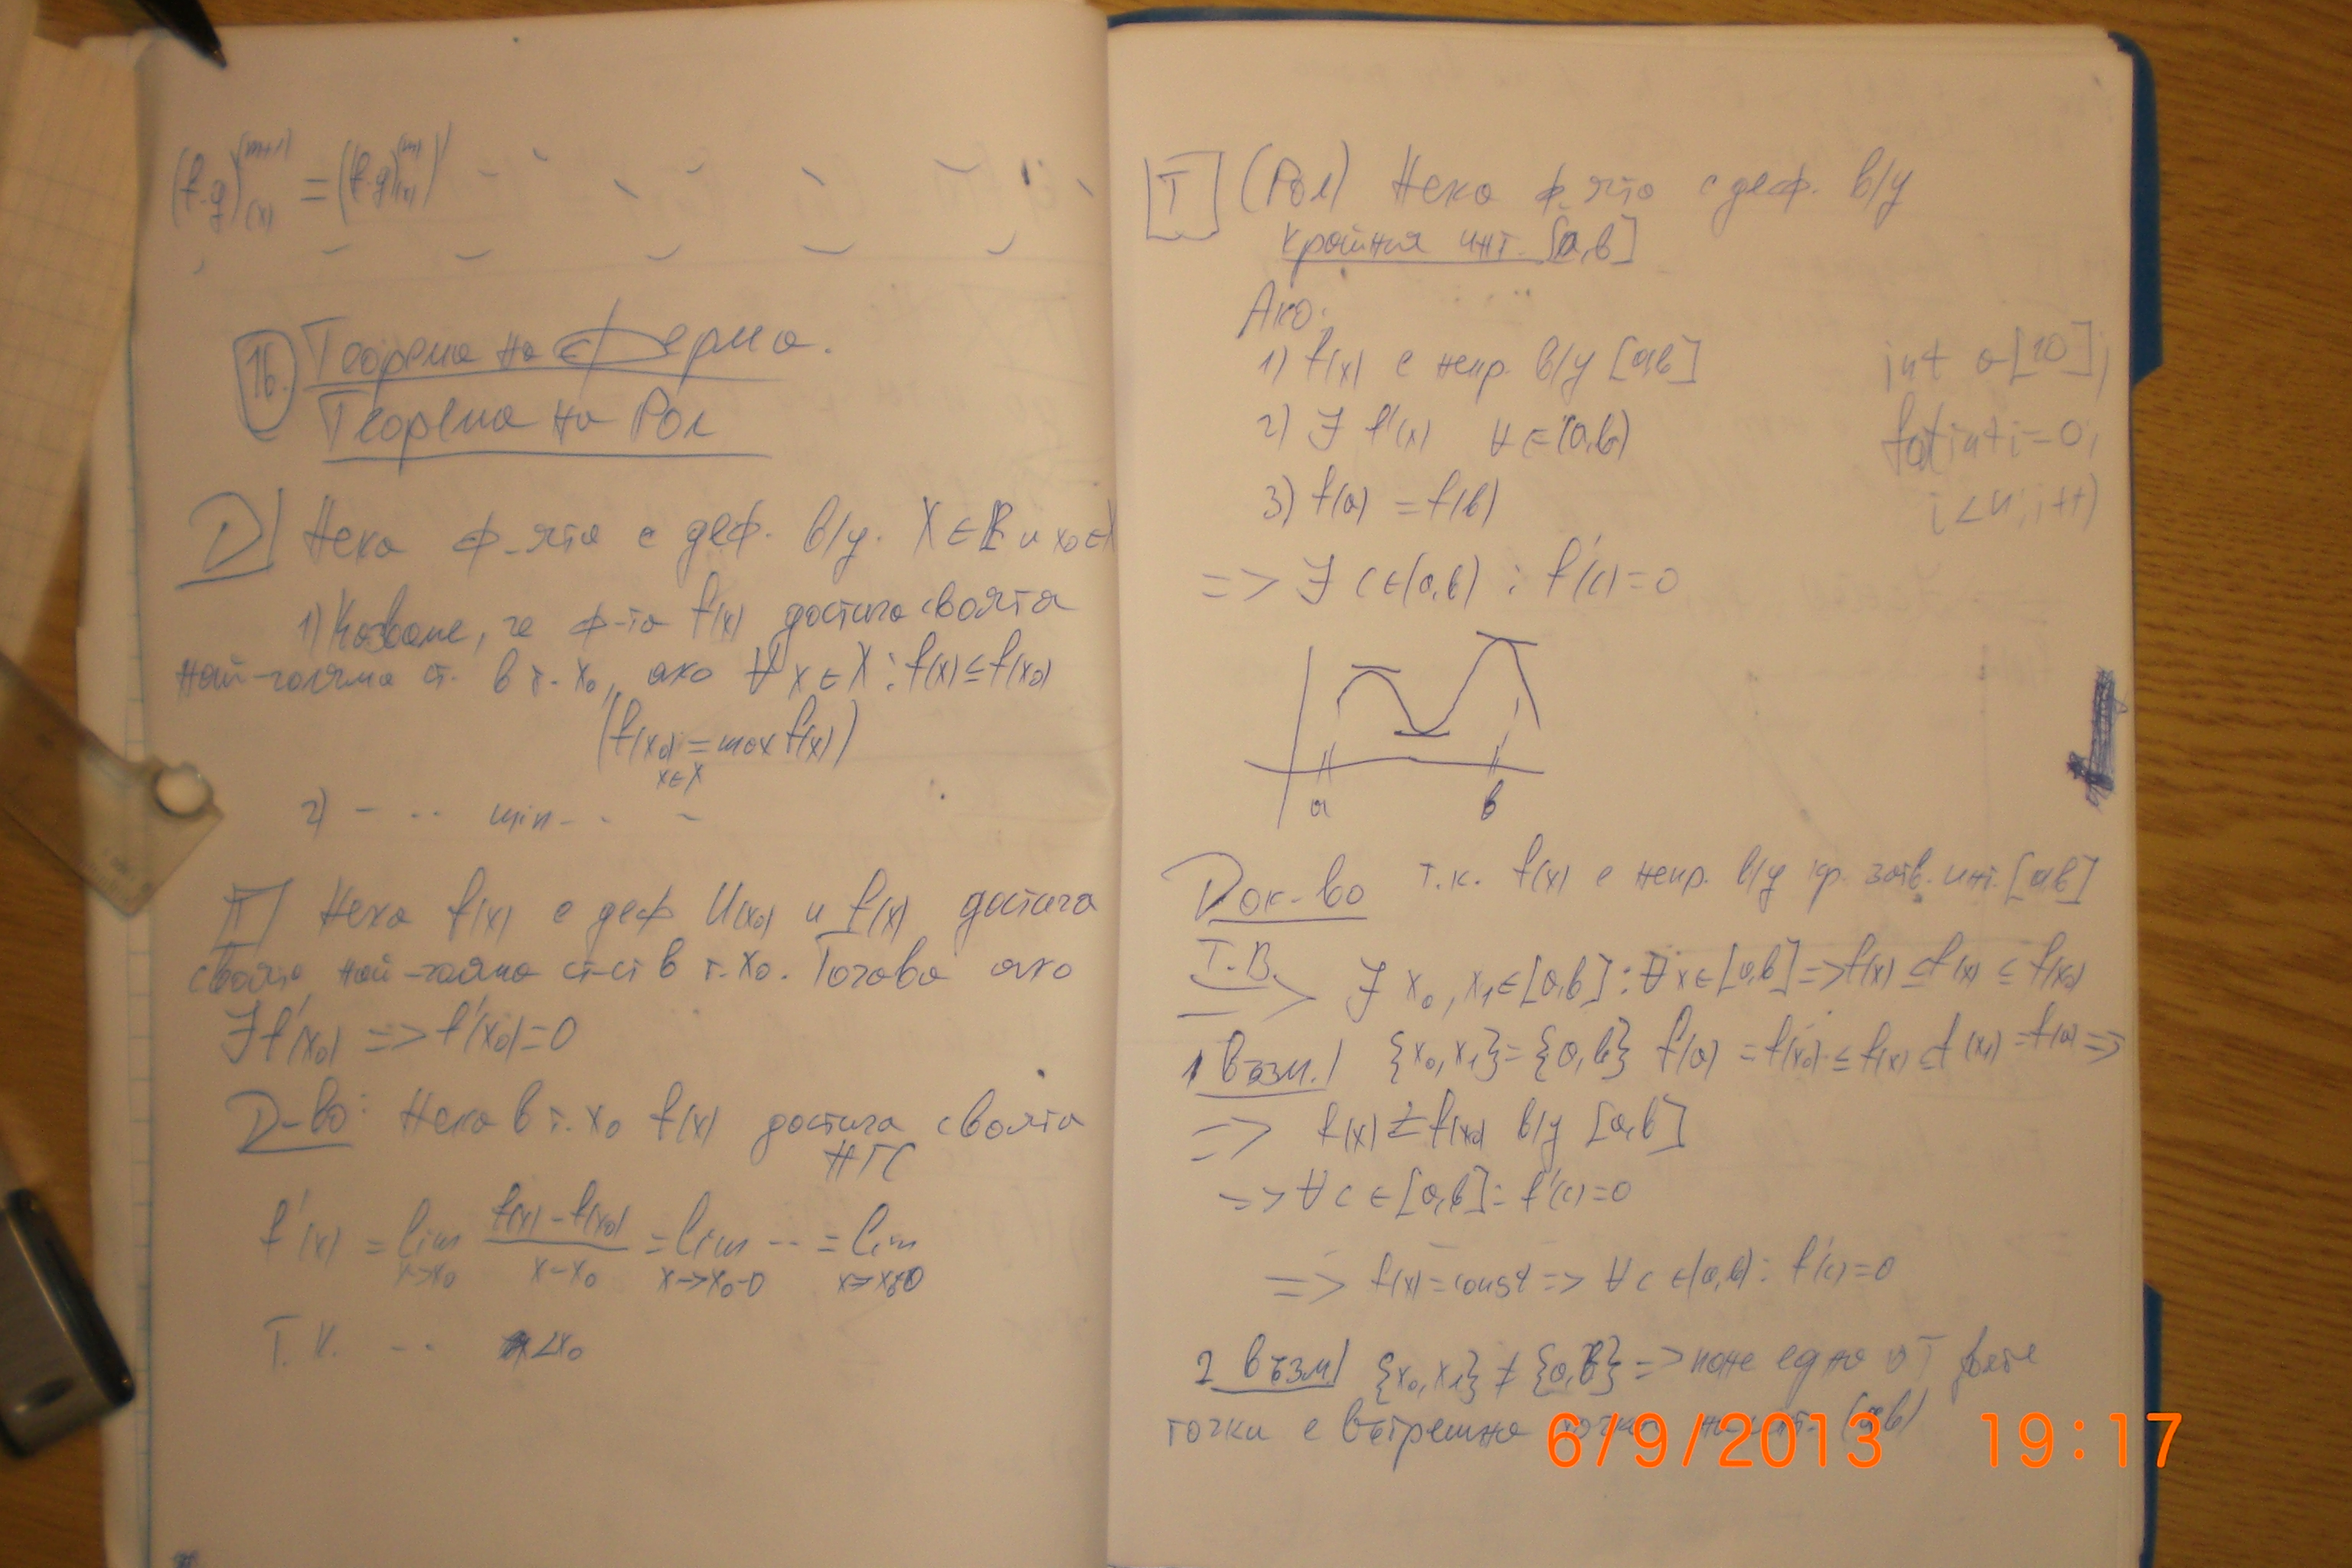 (f.g)^(m+1)(x) = (f.g)^(m)(x))'
16. Теорема на Ферма.
Теорема на Рол
D Нека ф-ята е деф. в/у. X ∈ ℝ и x₀ ∈ X
1) Казваме, че ф-та f(x) достига своята
най-голяма ст. в т. x₀, ако ∀ x ∈ X : f(x) ≤ f(x₀)
(f(x₀) = max f(x))
x∈X
2) - .. min - . -
T Нека f(x) е деф U(x₀) и f(x) достига
своята най-голяма ст-ст в т. x₀. Тогава ако
∃ f'(x₀) => f'(x₀) = 0
Д-во: Нека в т. x₀ f(x) достига своята
НГС
f'(x) = lim f(x) - f(x₀) = lim ... = lim
x->x₀ x - x₀ x->x₀-0 x->x₀+0
Т.К. .. < x₀
T (Рол) Нека ф-ята е деф. в/у
крайния инт. [a,b]
Ако:
1) f(x) е непр. в/у [a,b]
int a[10];
2) ∃ f'(x) ∀ ∈ (a,b)
for(int i=0;
3) f(a) = f(b)
i<n; i++)
=> ∃ c ∈ (a,b) : f'(c) = 0
a b
Док-во т.к. f(x) е непр. в/у кр. затв. инт. [a,b]
Т.В. => ∃ x₀, x₁ ∈ [a,b] : ∀ x ∈ [a,b] => f(x) ≤ f(x) ≤ f(x₀)
1 възм. {x₀, x₁} = {a, b} f(a) = f(x₀) ≤ f(x) ≤ f(x₁) = f(a) =>
=> f(x) = f(x₀) в/у [a,b]
=> ∀ c ∈ [a,b] : f'(c) = 0
=> f(x) = const => ∀ c ∈ (a,b) : f'(c) = 0
2 възм. {x₀, x₁} ≠ {a, b} => поне едно от двете
точки е вътрешна (a,b)
6/9/2013 19:17